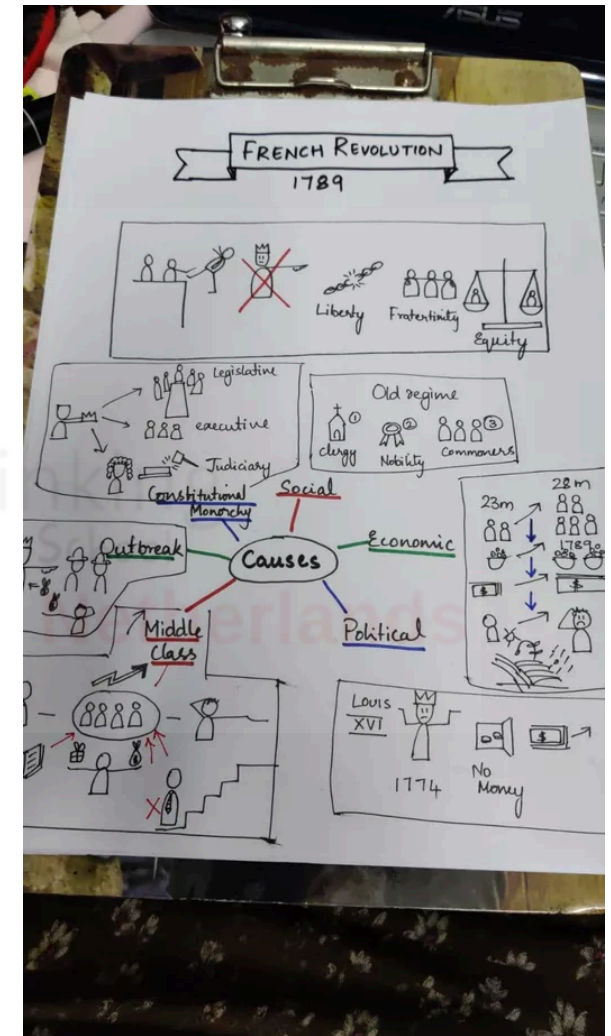 ASUS
FRENCH REVOLUTION
1789
Liberty
Fratertinity
Equity
Legislative
executive
Judiciary
Constitutional
Monarchy
Old regime
①
②
③
clergy
Nobility
Commoners
Social
Outbreak
Causes
Economic
Middle
Class
Political
23m
28m
1789
$
$
LOUIS
XVI
1774
No
Money
$
X
Netherlands